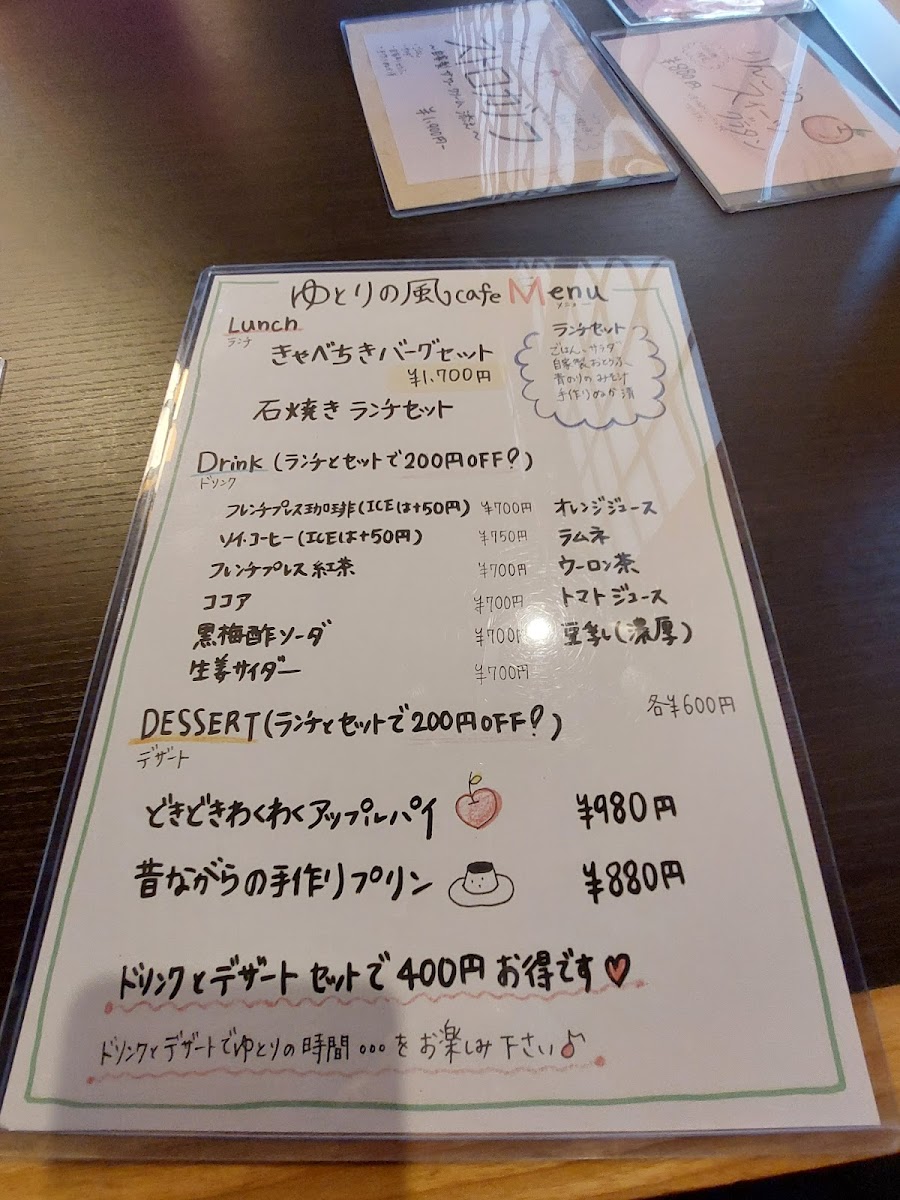 ストロガノフ
¥1,400-
りんごの
スイーツ
グラタン
¥880円
ゆとりの風cafe Menu
メニュー
Lunch
ランチ
きゃべちきバーグセット
¥1,700円
石焼き ランチセット
ランチセット
ごはん、サラダ
自家製おとうふ
青のりのみそ汁
手作りぬか漬
Drink (ランチとセットで200円OFF?)
ドリンク
フレンチプレス珈琲(ICEは+50円) ¥700円
ソイ・コーヒー(ICEは+50円) ¥750円
フレンチプレス紅茶 ¥700円
ココア ¥700円
黒梅酢ソーダ ¥700円
生姜サイダー ¥700円
オレンジジュース
ラムネ
ウーロン茶
トマトジュース
豆乳(濃厚)
各¥600円
DESSERT(ランチとセットで200円OFF?)
デザート
どきどきわくわくアップルパイ ¥980円
昔ながらの手作りプリン ¥880円
ドリンクとデザートセットで400円お得です♥
ドリンクとデザートでゆとりの時間…をお楽しみ下さい♪